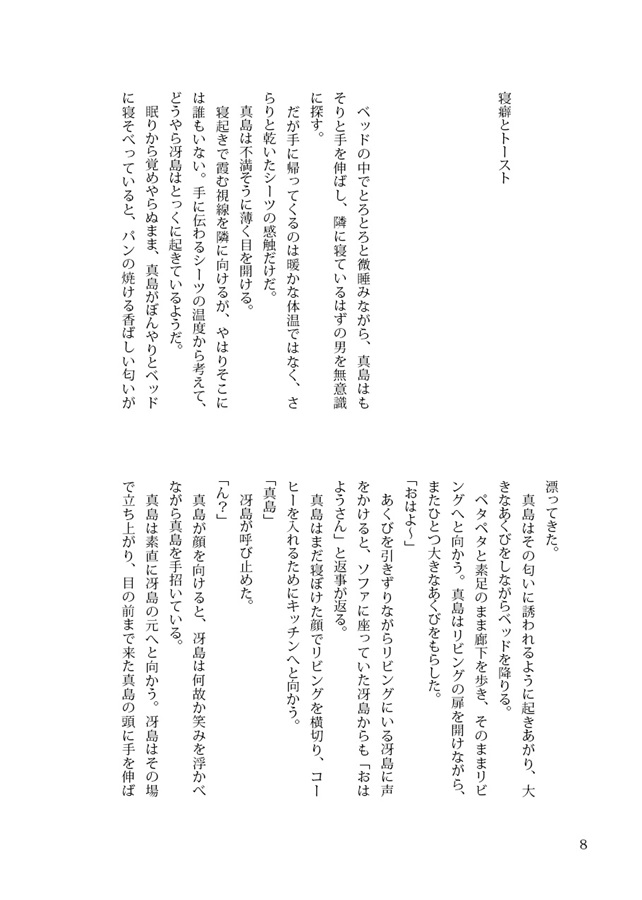 寝癖とトースト
　ベッドの中でとろとろと微睡みながら、真島はも
そりと手を伸ばし、隣に寝ているはずの男を無意識
に探す。
　だが手に帰ってくるのは暖かな体温ではなく、さ
らりと乾いたシーツの感触だけだ。
　真島は不満そうに薄く目を開ける。
　寝起きで霞む視線を隣に向けるが、やはりそこに
は誰もいない。手に伝わるシーツの温度から考えて、
どうやら冴島はとっくに起きているようだ。
　眠りから覚めやらぬまま、真島がぼんやりとベッド
に寝そべっていると、パンの焼ける香ばしい匂いが
漂ってきた。
　真島はその匂いに誘われるように起きあがり、大
きなあくびをしながらベッドを降りる。
　ペタペタと素足のまま廊下を歩き、そのままリビ
ングへと向かう。真島はリビングの扉を開けながら、
またひとつ大きなあくびをもらした。
「おはよ〜」
　あくびを引きずりながらリビングにいる冴島に声
をかけると、ソファに座っていた冴島からも「おは
ようさん」と返事が返る。
　真島はまだ寝ぼけた顔でリビングを横切り、コー
ヒーを入れるためにキッチンへと向かう。
「真島」
　冴島が呼び止めた。
「ん？」
　真島が顔を向けると、冴島は何故か笑みを浮かべ
ながら真島を手招いている。
　真島は素直に冴島の元へと向かう。冴島はその場
で立ち上がり、目の前まで来た真島の頭に手を伸ば
8